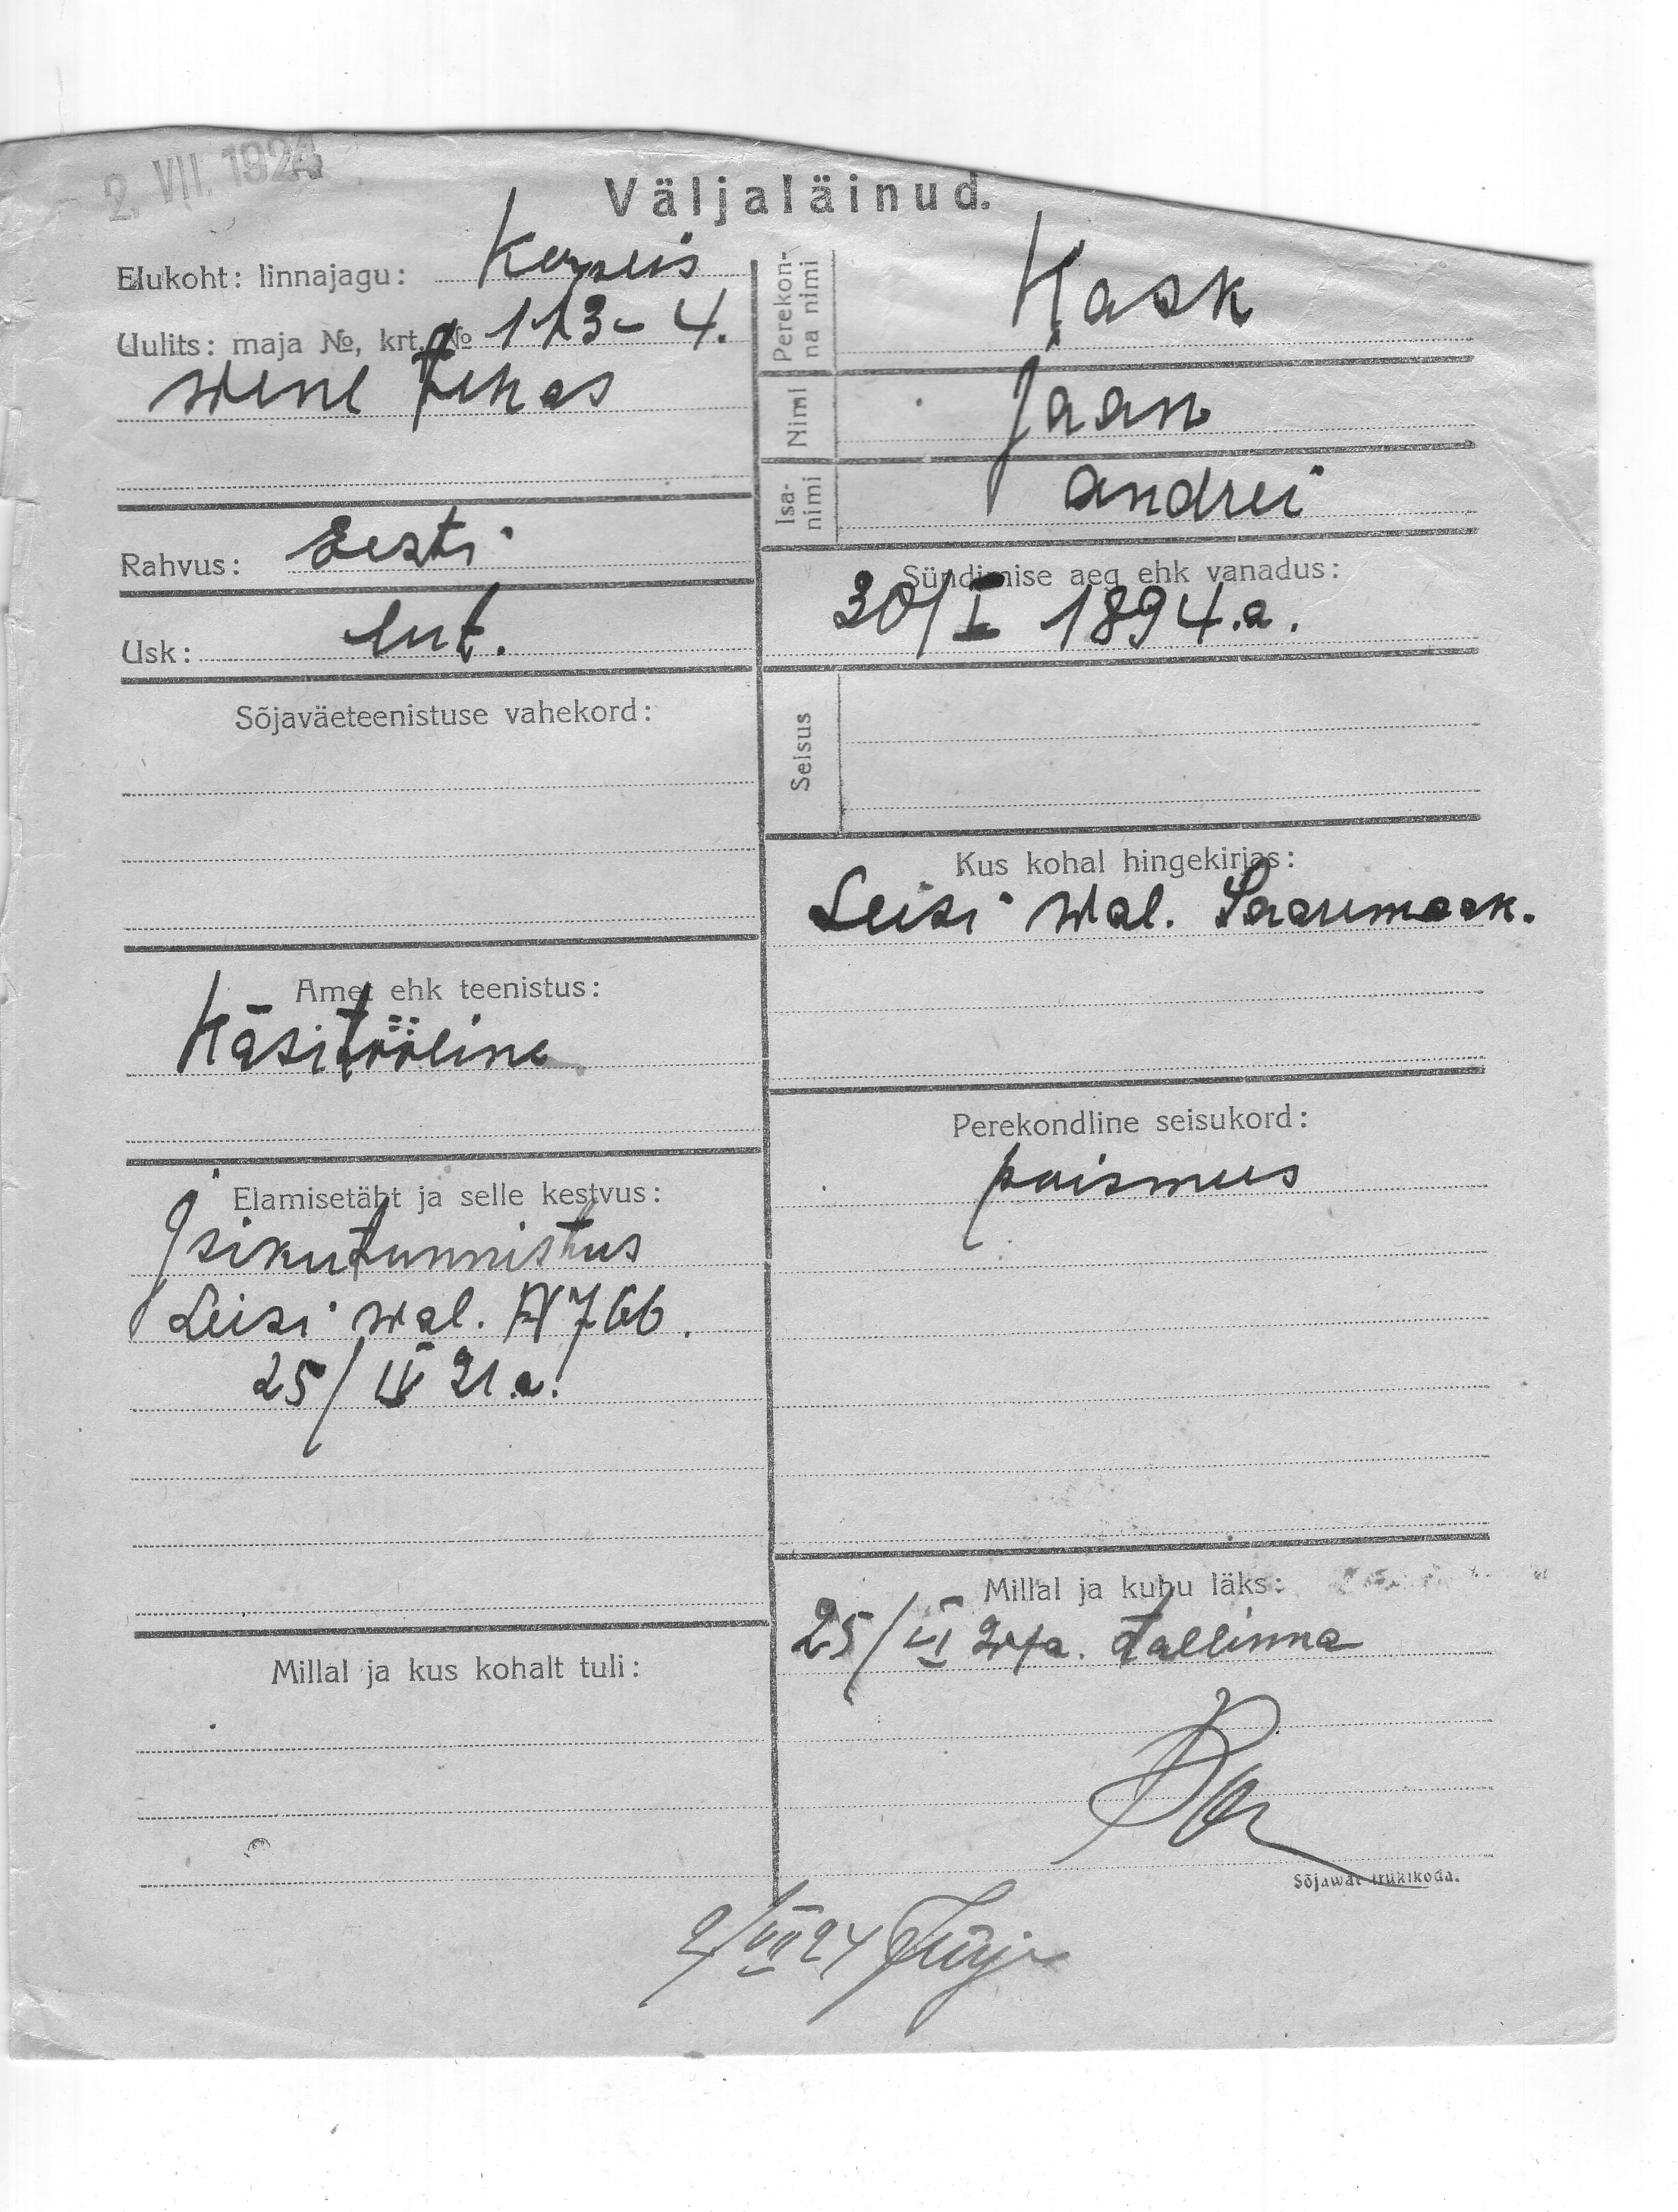 2. VII. 1924
Väljaläinud.
Elukoht: linnajagu:
Uulits: maja №, krt. № 113 – 4.
Wene
Rahvus: Eesti
Usk: lut.
Sõjaväeteenistuse vahekord:
Amet ehk teenistus:
Käsitööline
Elamisetäht ja selle kestvus:
Isikutunnistus
Leisi wal. N 766.
25/IV 21.a.
Millal ja kus kohalt tuli:
Perekonna nimi Kask
Nimi Jaan
Isanimi Andrei
Sündimise aeg ehk vanadus:
30/I 1894.a.
Seisus
Kus kohal hingekirjas:
Leisi wal. Saaremaak.
Perekondline seisukord:
poismees
Millal ja kuhu läks:
25/VI 24 a. Tallinna
Sõjawäe trükikoda.
2/VII 24